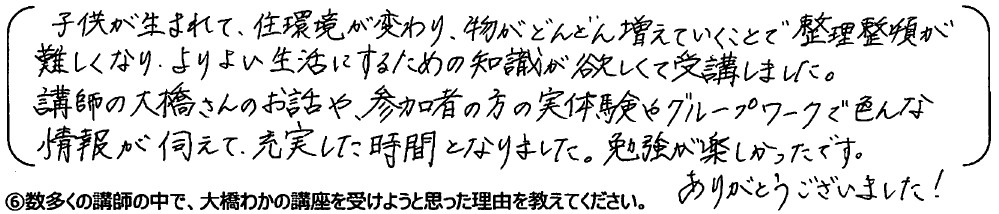 子供が生まれて、住環境が変わり、物がどんどん増えていくことで整理整頓が
難しくなり、よりよい生活にするための知識が欲しくて受講しました。
講師の大橋さんのお話や、参加者の方の実体験やグループワークで色んな
情報が伺えて、充実した時間となりました。勉強が楽しかったです。
ありがとうございました!
⑥数多くの講師の中で、大橋わかの講座を受けようと思った理由を教えてください。